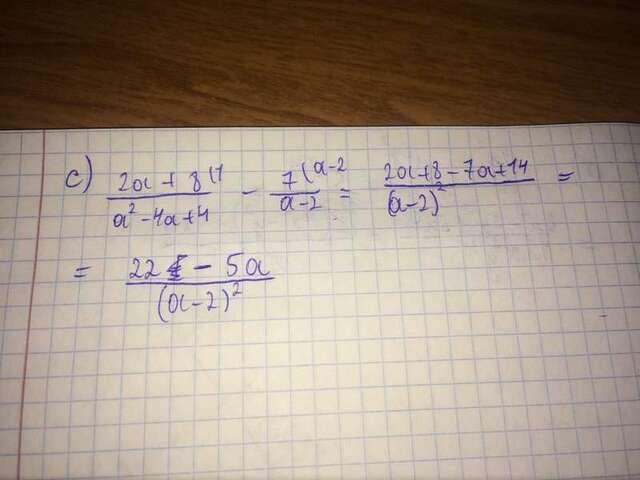 c) (2a + 8 (1)/(a² - 4a + 4) - (7 (a-2)/(a-2) = (2a+8-7a+14)/(a-2)² =
= (22 - 5a)/(a-2)²